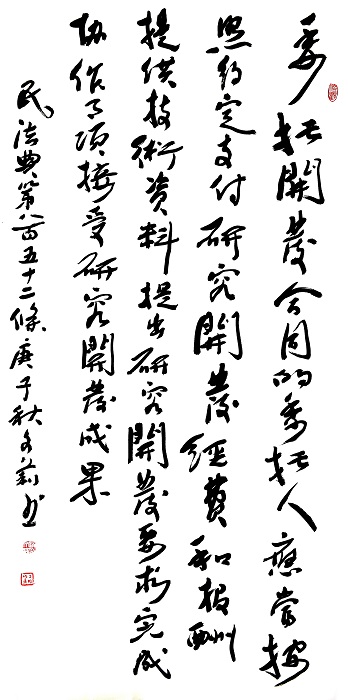 委托開發合同的委托人應當按
照約定支付研究開發經費和報酬
提供技術資料提出研究開發要求完成
協作事項接受研究開發成果
民法典第八百五十二條庚子秋文莉书